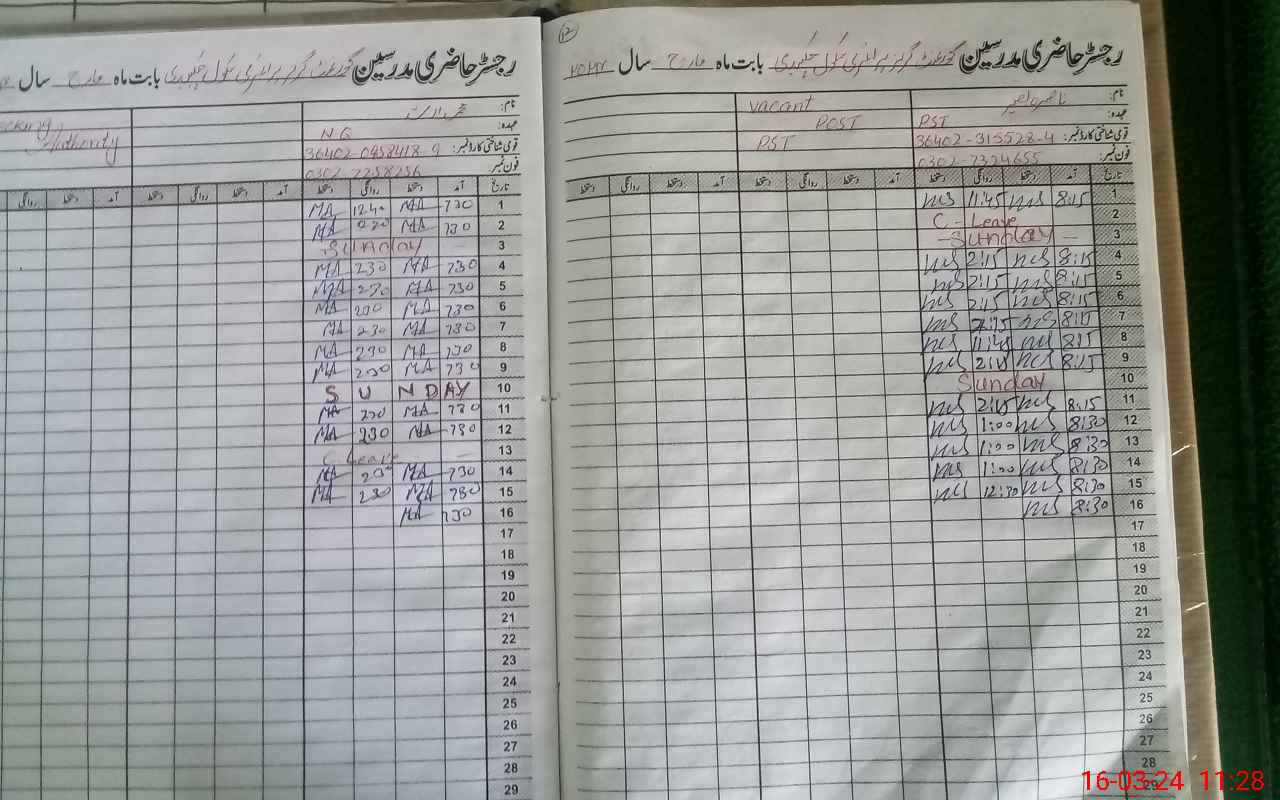 رجسٹر حاضری مدرسین گورنمنٹ گرلز پرائمری سکول بابت ماہ مارچ سال ۲۰۲۴
نام:
vacant
عہدہ: PST
POST
قومی شناختی کارڈ نمبر: 36402-315528-4
PST
فون نمبر: 0302-7324655
تاریخ آمد دستخط روانگی دستخط آمد دستخط روانگی دستخط آمد دستخط روانگی دستخط
1 8:15 ms 11:45 ms
2 C-Leave
3 -Sunday-
4 8:15 ms 2:15 ms
5 8:15 ms 2:15 ms
6 8:15 ms 2:15 ms
7 8:15 ms 2:15 ms
8 8:15 ms 11:45 ms
9 8:15 ms 2:15 ms
10 Sunday
11 8:15 ms 2:15 ms
12 8:30 ms 1:00 ms
13 8:30 ms 1:00 ms
14 8:30 ms 1:00 ms
15 8:30 ms 12:30 ms
16 8:30 ms
17
18
19
20
21
22
23
24
25
26
27
28
29
رجسٹر حاضری مدرسین گورنمنٹ گرلز پرائمری سکول بابت ماہ مارچ سال
نام:
عہدہ: N.Q
Authority
قومی شناختی کارڈ نمبر: 36402-0958418-9
فون نمبر: 0302-7258256
تاریخ آمد دستخط روانگی دستخط آمد دستخط روانگی دستخط آمد دستخط روانگی
1 730 MA 1240 MA
2 730 MA MA
3 Sunday
4 730 MA 230 MA
5 730 MA 230 MA
6 730 MA 230 MA
7 730 MA 230 MA
8 730 MA 230 MA
9 730 MA 230 MA
10 SUNDAY
11 730 MA 230 MA
12 730 MA 230 MA
13 C Leave
14 730 MA 230 MA
15 730 MA 230 MA
16 730 MA
17
18
19
20
21
22
23
24
25
26
27
28
29
16-03-24 11:28